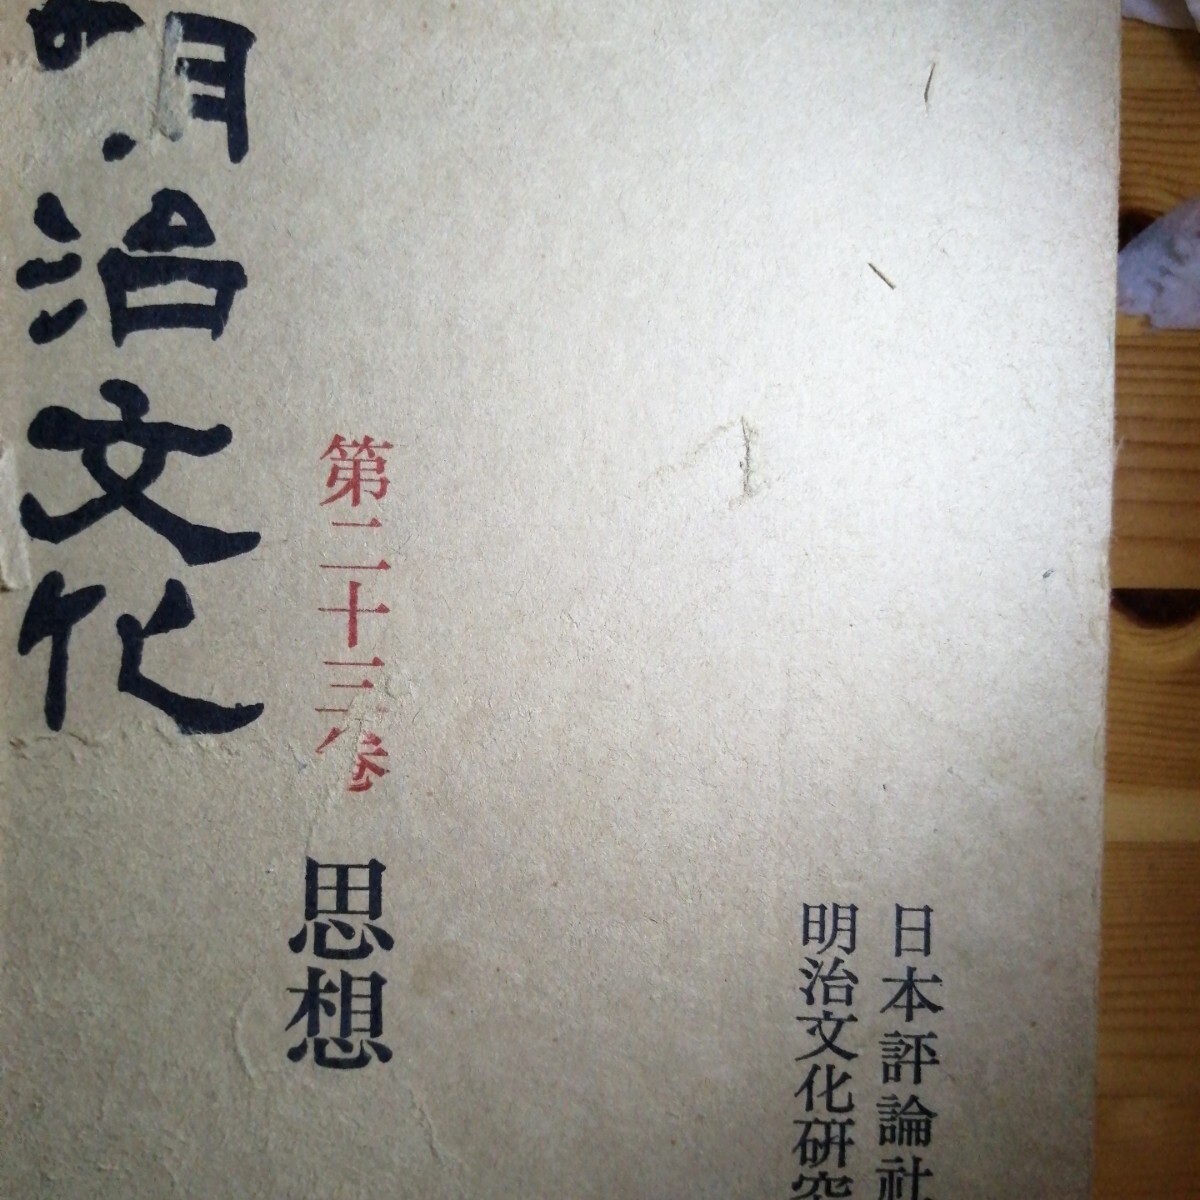 明治文化
第二十三巻
思想
日本評論社
明治文化研究